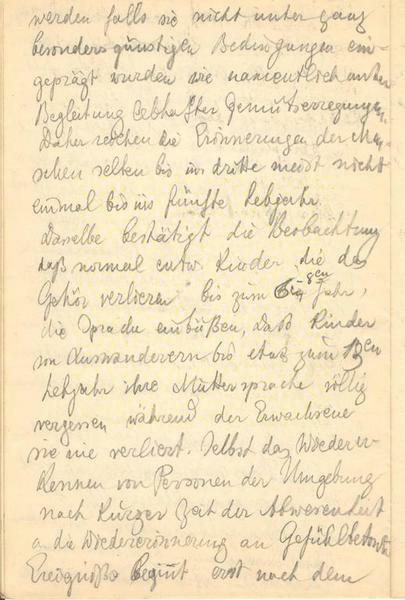 werden falls sie nicht unter ganz
besonders günstigen Bedingungen ein-
geprägt wurden wie namentlich unter
Begleitung lebhafter Gemütserregungen.
Daher reichen die Erinnerungen der Men-
schen selten bis ins dritte meist nicht
einmal bis ins fünfte Lebjahr.
Dasselbe bestätigt die Beobachtung
daß normal entw. Kinder, die das
Gehör verlieren bis zum Jahr,
die Sprache einbüßen, daß Kinder
von Auswanderern bis etwa zum 13en
Lebjahr ihre Muttersprache völlig
vergessen während der Erwachsene
sie nie verliert. Selbst das Wiederer-
kennen von Personen der Umgebung
nach kurzer Zeit der Abwesenheit
die Wiedererinnerung an Gefühlbetonte
Ereigniße beginnt erst nach dem